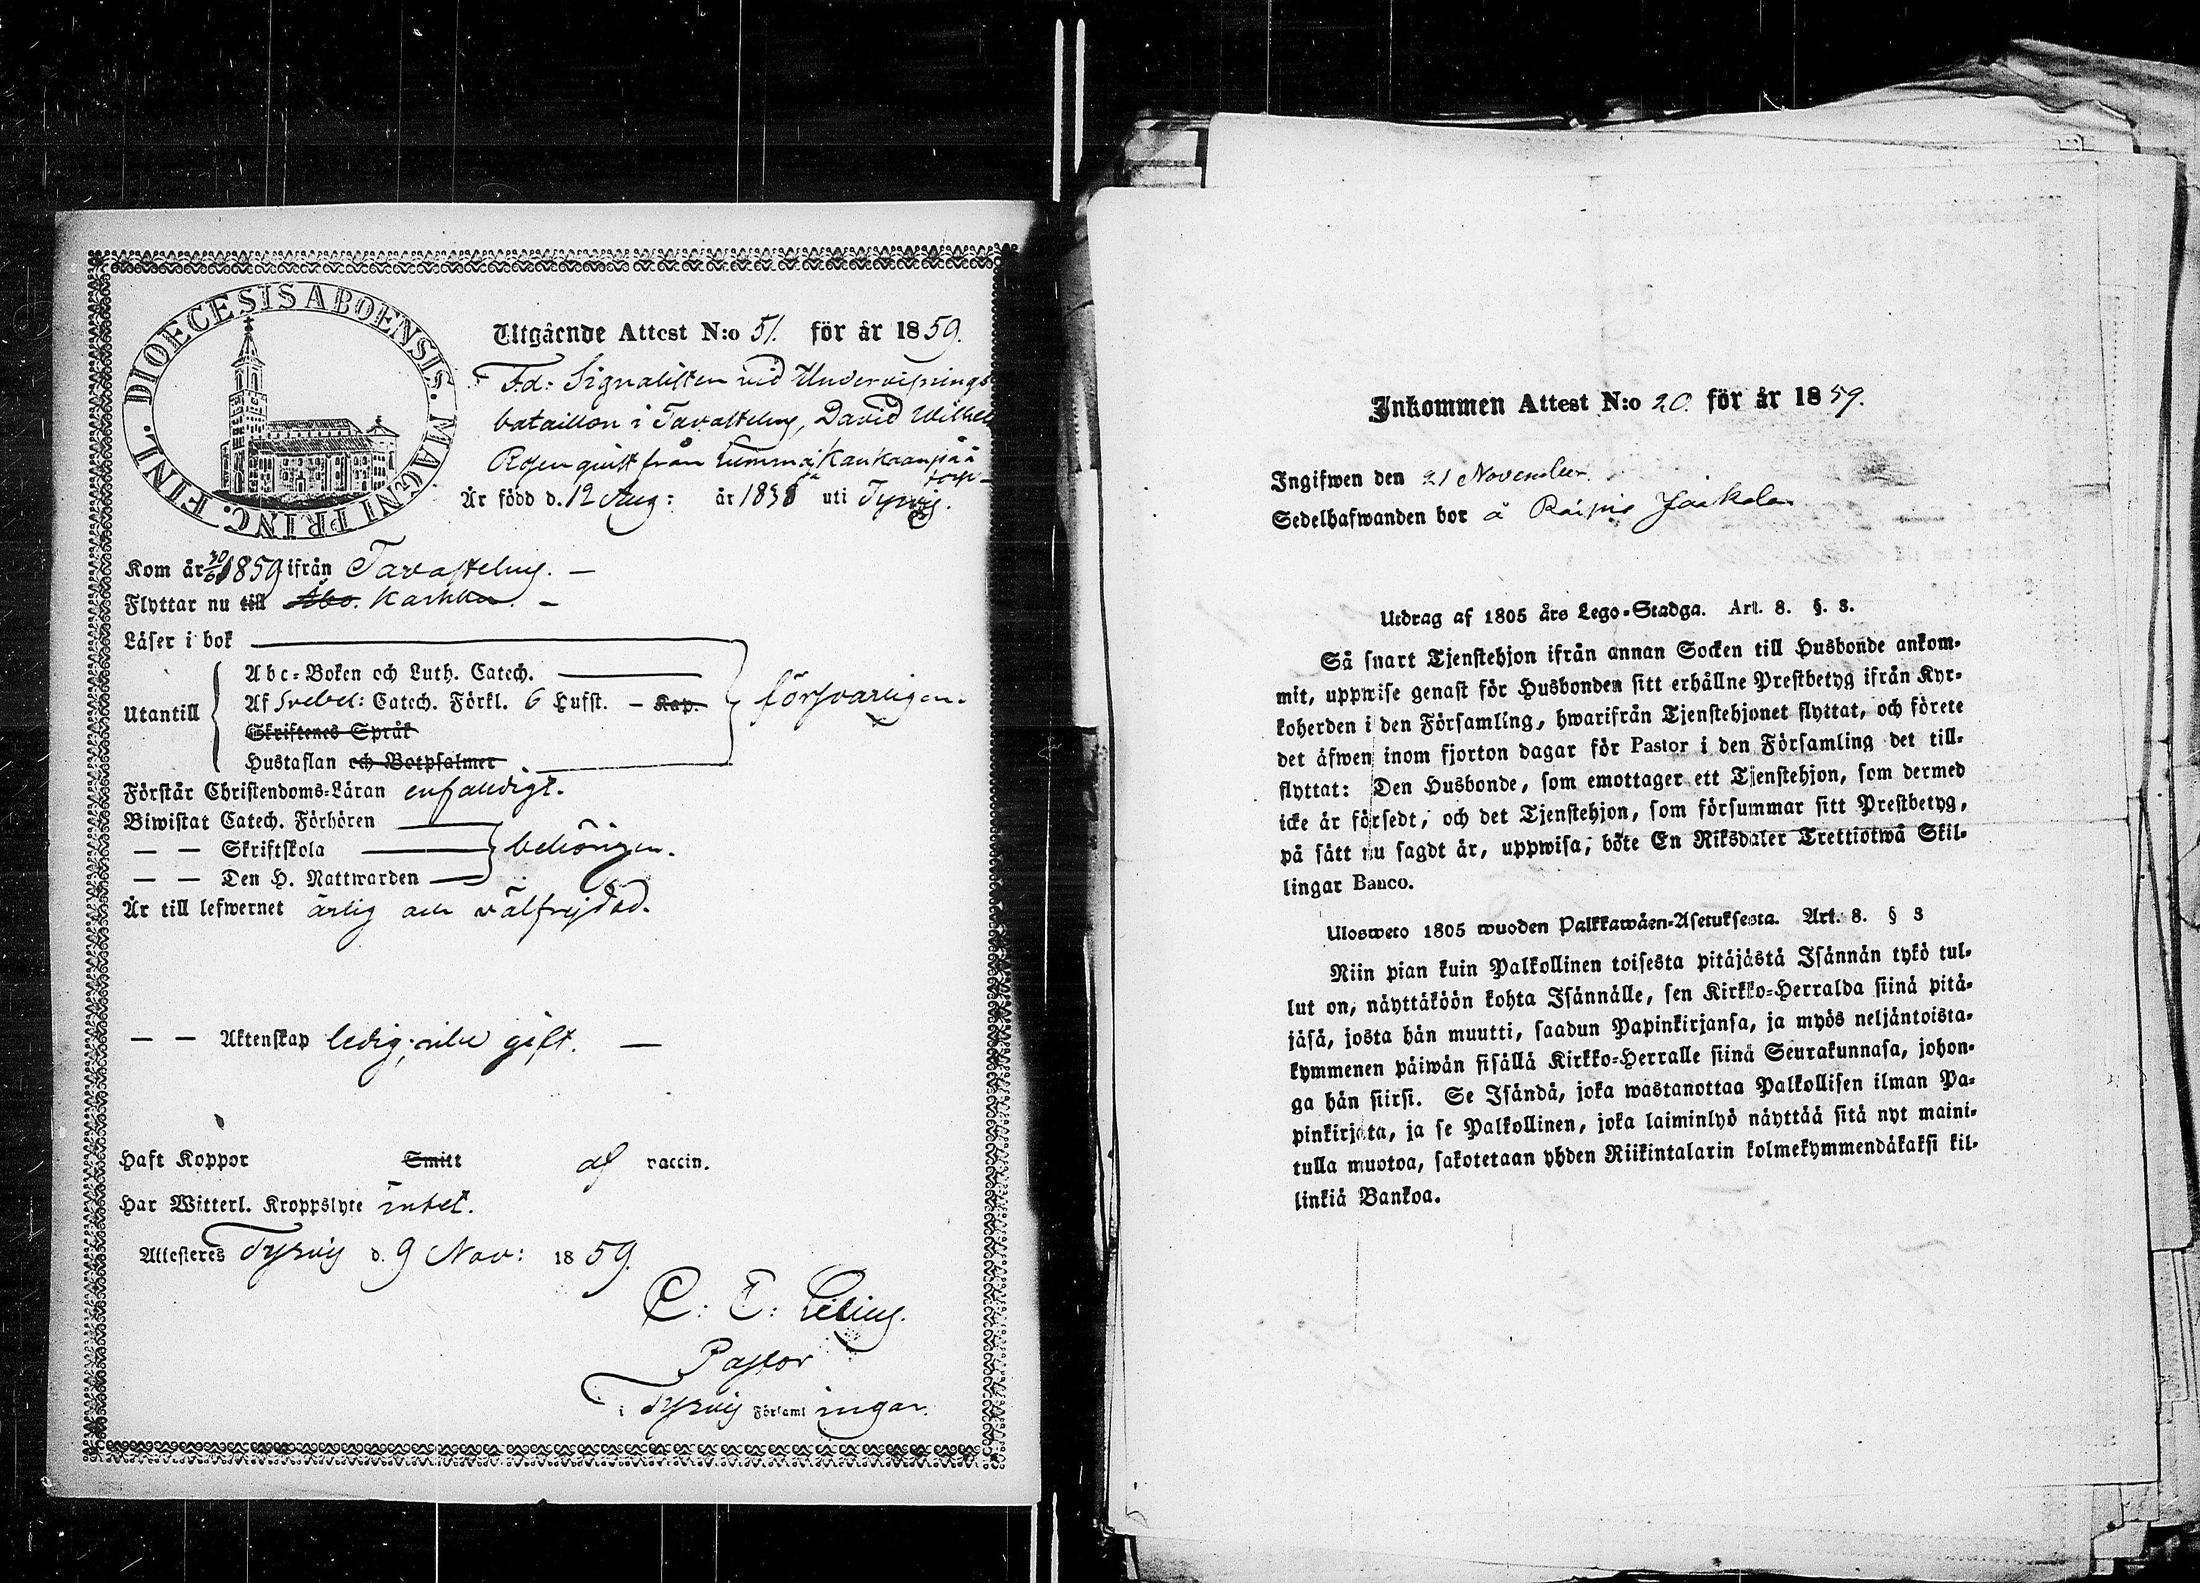 DIOECESIS ABOENSIS. MAGNI PRINC. FINL.
Utgående Attest N:o 51. för år 1859.
Fd: Signalisten vid Undervisnings
bataillon i Tavastehus, David Wilhel
Rosenquist från Kaukaanpää
torp
Är född d. 12 Aug: år 1838 uti Tyrvis.
Kom år 30/6 1859 ifrån Tavastehus. —
Flyttar nu till Åbo. Karkku. —
Läser i bok
Utantill
Abc-Boken och Luth. Catech.
Af Svebel: Catech. Förkl. 6 Hufst. — Kap.
försvarligen.
Skriftenes Språk
Hustaflan och Botpsalmer
Förstår Christendoms-Läran enfaldigt.
Biwistat Catech. Förhören
— — Skriftskola
behörigen.
— — Den H. Nattwarden
Är till lefwernet ärlig och välfrejdad.
— — Äktenskap ledig; icke gift. —
Haft Koppor Smitt af vaccin.
Har Witterl. Kroppslyte intet.
Attesteres Tyrvis d. 9 Nov: 1859.
Pastor
i Tyrvis Förſaml ingar.
Inkommen Attest N:o 20. för år 1859.
Ingifwen den 21 November.
Sedelhafwanden bor å Jaakola
Utdrag af 1805 års Lego-Stadga. Art. 8. §. 3.
Så snart Tjenstehjon ifrån annan Socken till Husbonde ankom-
mit, uppwise genast för Husbonden sitt erhållne Prestbetyg ifrån Kyr-
koherden i den Församling, hwarifrån Tjenstehjonet flyttat, och förete
det äfwen inom fjorton dagar för Pastor i den Församling det till-
flyttat: Den Husbonde, som emottager ett Tjenstehjon, som dermed
icke är försedt, och det Tjenstehjon, som försummar sitt Prestbetyg,
på sätt nu sagdt är, uppwisa, böte En Riksdaler Trettiotwå Skil-
lingar Banco.
Ulosweto 1805 wuoden Palkkawäen-Asetuksesta. Art. 8. § 3
Niin pian kuin Palkollinen toisesta pitäjästä Isännän tykö tul-
lut on, näyttäköön kohta Isännälle, sen Kirkko-Herralda siinä pitä-
jäsä, josta hän muutti, saadun Papinkirjansa, ja myös neljäntoista-
kymmenen päiwän sisällä Kirkko-Herralle siinä Seurakunnasa, johon-
ga hän siirsi. Se Isändä, joka wastanottaa Palkollisen ilman Pa-
pinkirjata, ja se Palkollinen, joka laiminlyö näyttää sitä nyt maini-
tulla muotoa, sakotetaan yhden Riikintalarin kolmekymmendäkaksi kil-
linkiä Bankoa.